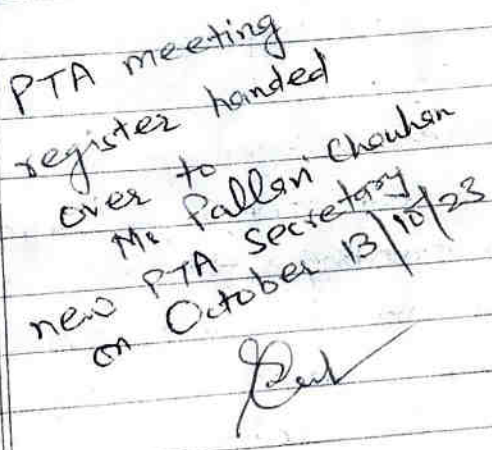 PTA meeting
register handed
over to
Ms Pallavi Chouhan
new PTA secretary
on October 13/10/23